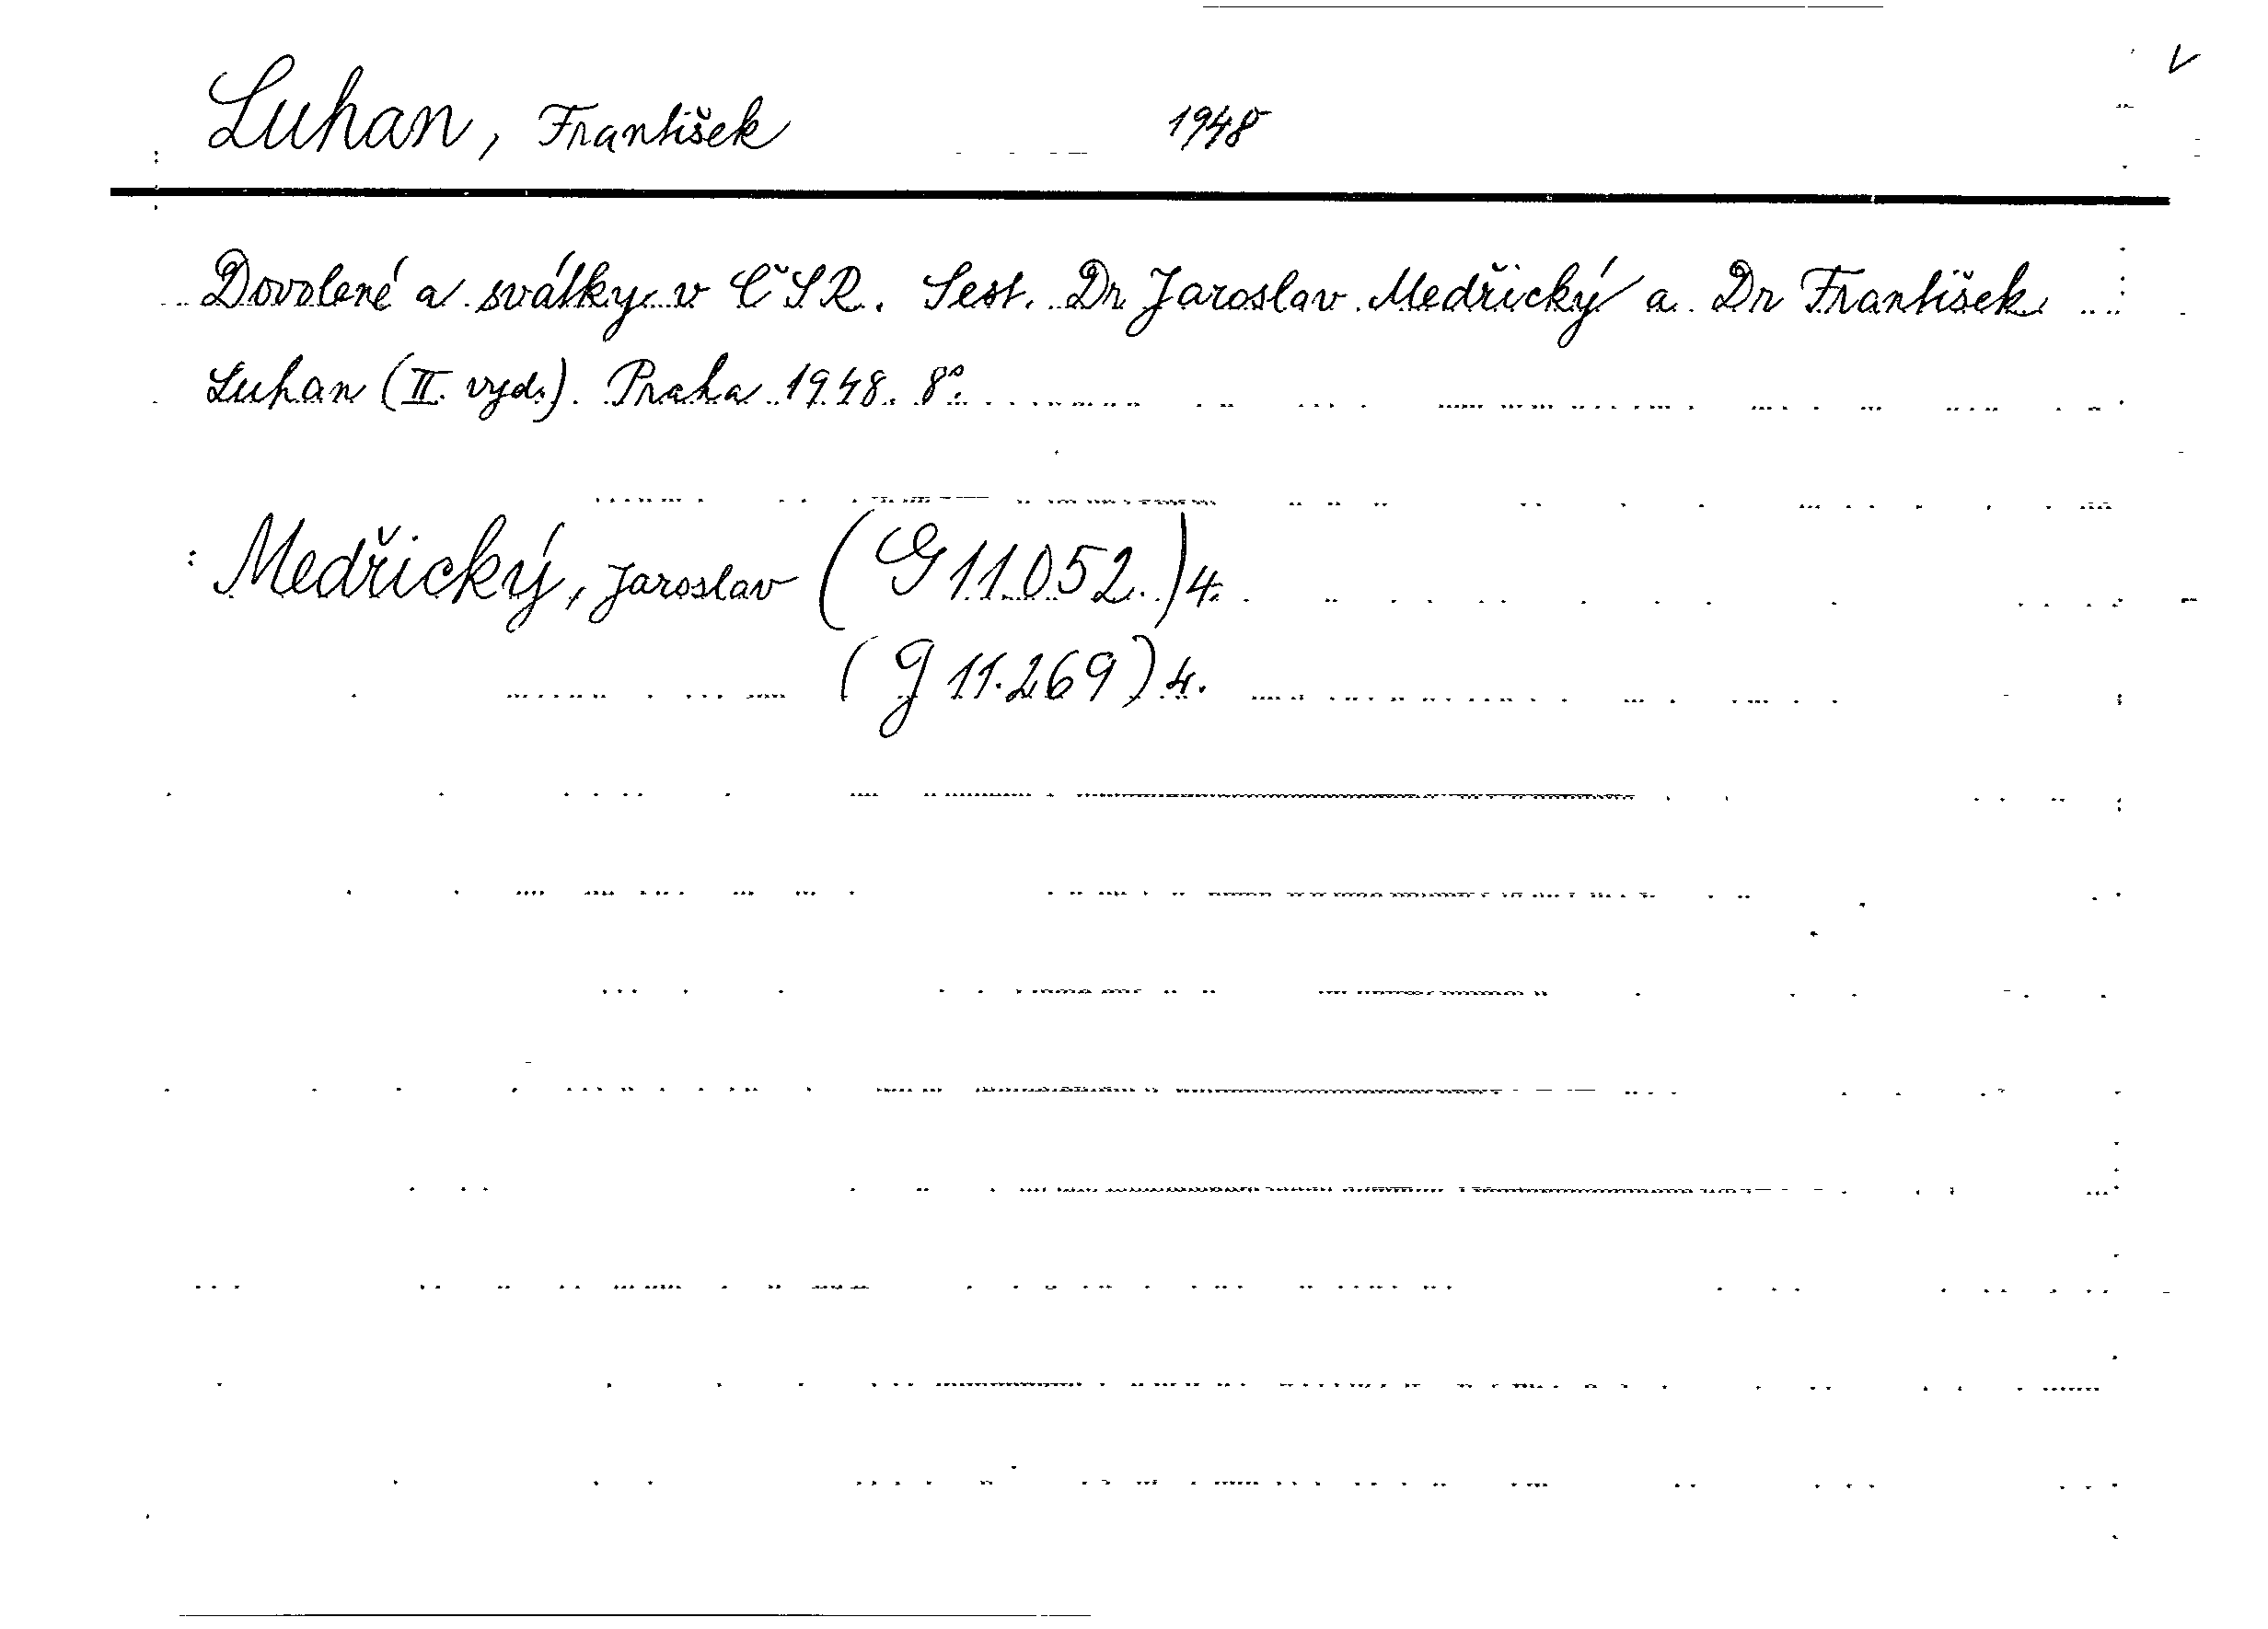 Luhan, František 1948
Dovolené a svátky v ČSR. Sest. Dr Jaroslav Medřický a Dr František
Luhan (II. vyd.). Praha 1948. 8°.
Medřický, Jaroslav (G 11.052.)4.
(G 11.269)4.